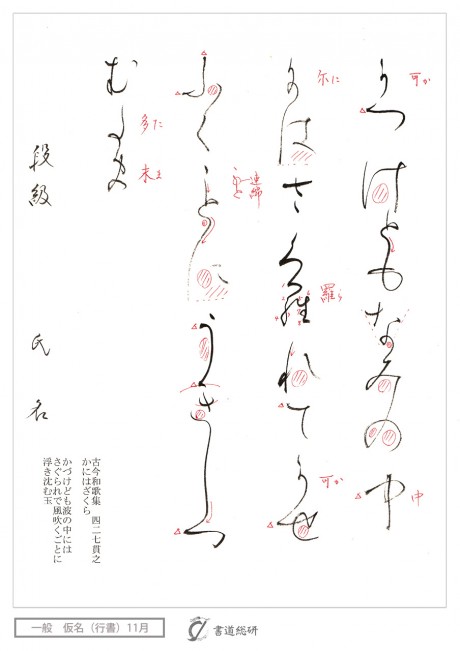 可つけともなみの中
可か
中
尓はさく羅れて可せ
尓に
羅ら
可か
ふくことにうきしつ
連綿
む多末
多た
末ま
古今和歌集 四二七貫之
かにはざくら
かづけども波の中には
さぐられで風吹くごとに
浮き沈む玉
段級 氏名
一般 仮名（行書）11月
書道総研